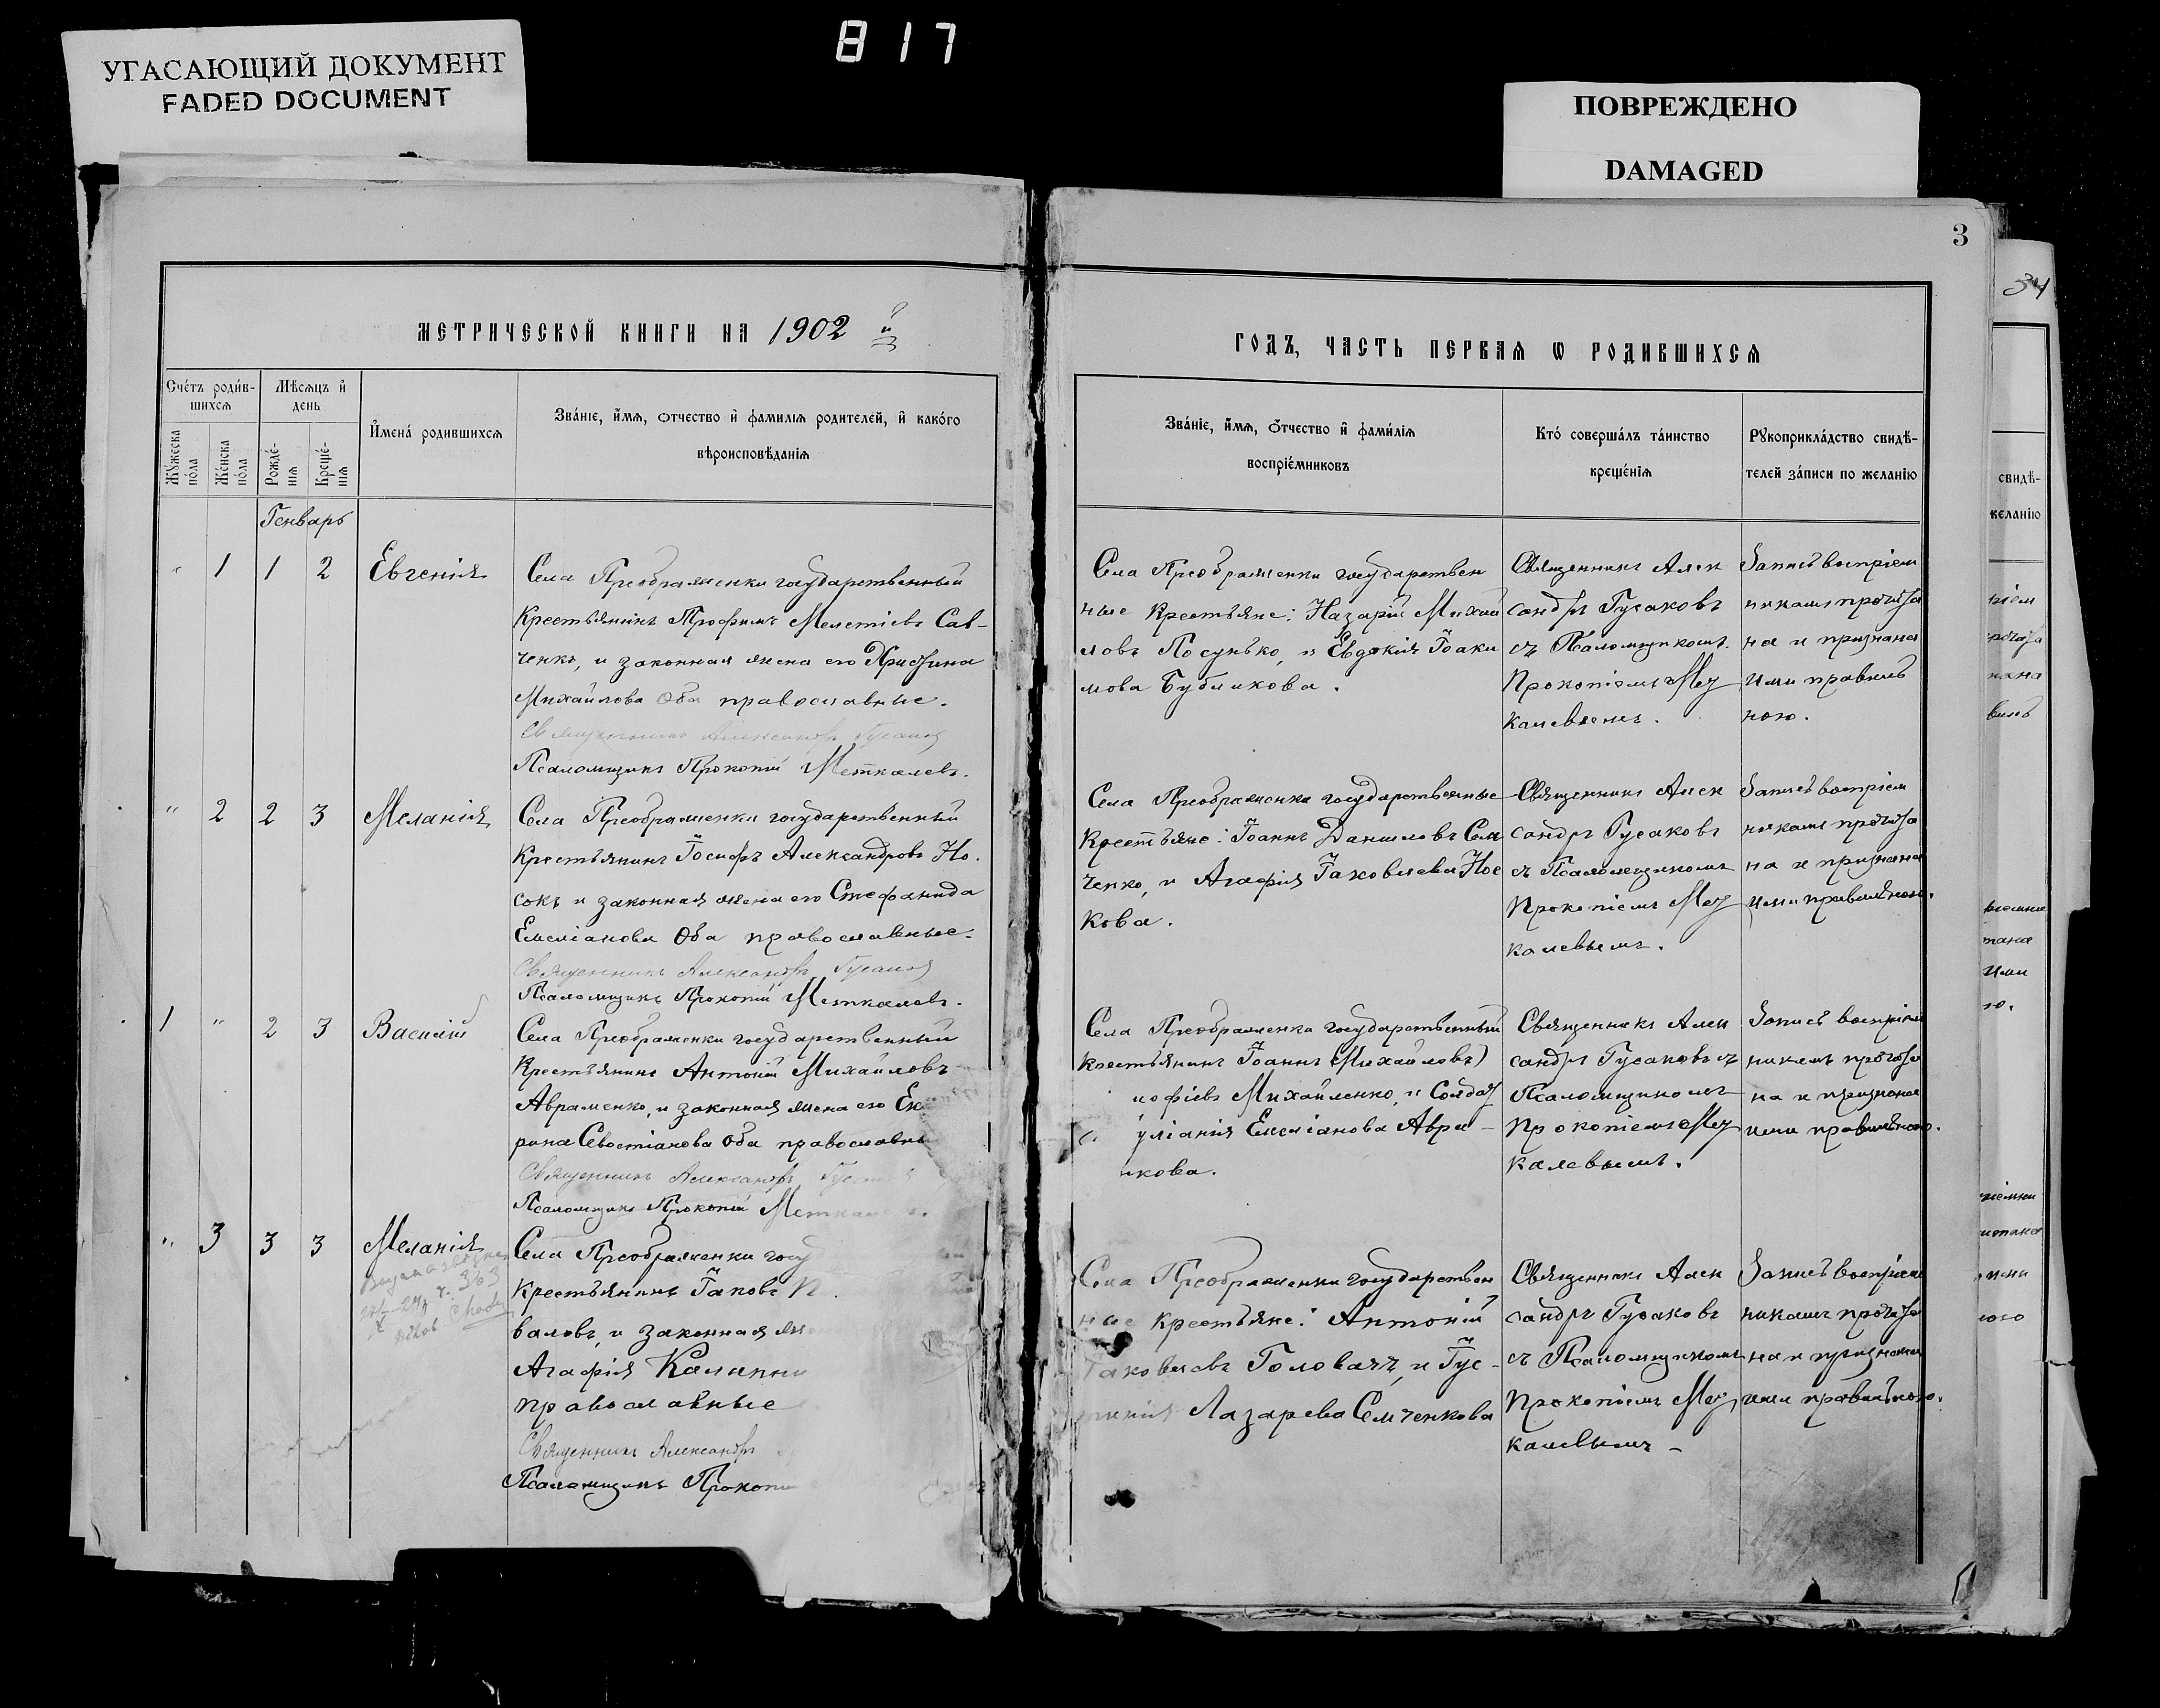 817
УГАСАЮЩИЙ ДОКУМЕНТ
FADED DOCUMENT
ПОВРЕЖДЕНО
DAMAGED
3
34
МЕТРИЧЕСКОЙ КНИГИ НА 1902 й
ГОДЪ, ЧАСТЬ ПЕРВАѦ Ѡ РОДИВШИХСѦ
Счетъ родив-
шихсѧ
Мѣсѧцъ и
день
Имена родившихсѧ
Званіе, имѧ, отчество и фамиліѧ родителей, и какого
вѣроисповѣданіѧ
Мужеска
пола
Женска
пола
Рожде-
ніѧ
Креще-
ніѧ
Званіе, имѧ, отчество и фамиліѧ
воспріемниковъ
Кто совершалъ таинство
крещеніѧ
Рукоприкладство свидѣ-
телей записи по желанію
свидѣ-
желанію
Генварь
" 1 1 2 Евгенія
Села Преображенки государственный
крестьянинъ Трофимъ Мелетіевъ Сав-
ченко, и законная жена его Христина
Михайлова Оба православные.
Священникъ Александръ Гусаковъ
Псаломщикъ Прокопій Меткалевъ.
Села Преображенки государствен
ные крестьяне: Назарій Михаи
ловъ Посунько, и Евдокія Іоаки
мова Бубликова.
Священникъ Алек
сандръ Гусаковъ
съ Псаломщикомъ
Прокопіемъ Мет
калевымъ.
Запись воспріем
никами прочита
на и признана
ими правиль
ною.
" 2 2 3 Меланія
Села Преображенки государственный
крестьянинъ Іосифъ Александровъ Но-
сокъ и законная жена его Стефанида
Емеліанова Оба православные.
Священникъ Александръ Гусаковъ
Псаломщикъ Прокопій Меткалевъ.
Села Преображенки государственные
крестьяне: Іоаннъ Даниловъ Сем
ченко, и Агафія Іаковлева Нос
кова.
Священникъ Алек
сандръ Гусаковъ
съ Псаломщикомъ
Прокопіемъ Мет
калевымъ.
Запись воспріем
никами прочита
на и признана
ими правильною.
1 " 2 3 Василій
Села Преображенки государственный
крестьянинъ Антоній Михайловъ
Авраменко, и законная жена его Ек
рина Севостіанова Оба православны
Священникъ Александръ Гусаковъ
Псаломщикъ Прокопій Меткалевъ.
Села Преображенки государственный
крестьянинъ Іоаннъ (Михайловъ)
нофіевъ Михайленко, и Солдат
уліанія Емеліанова Авра-
нкова.
Священникъ Алек
сандръ Гусаковъ съ
Псаломщикомъ
Прокопіемъ Мет
калевымъ.
Запись воспріем
никами прочита
на и признана
ими правильною.
" 3 3 3 Меланія
363
Села Преображенки госуд
крестьянинъ Іаковъ П
валовъ, и законная же
Агафія Калинни
православные
Священникъ Александръ
Псаломщикъ Прокопій
Села Преображенки государствен
ные крестьяне: Антоній
Іаковлевъ Головачъ, и Іус-
тинія Лазарева Семченкова
Священникъ Алек
сандръ Гусаковъ
съ Псаломщикомъ
Прокопіемъ Мет
калевымъ
Запись воспріем
никами прочита
на и признана
ими правильною.